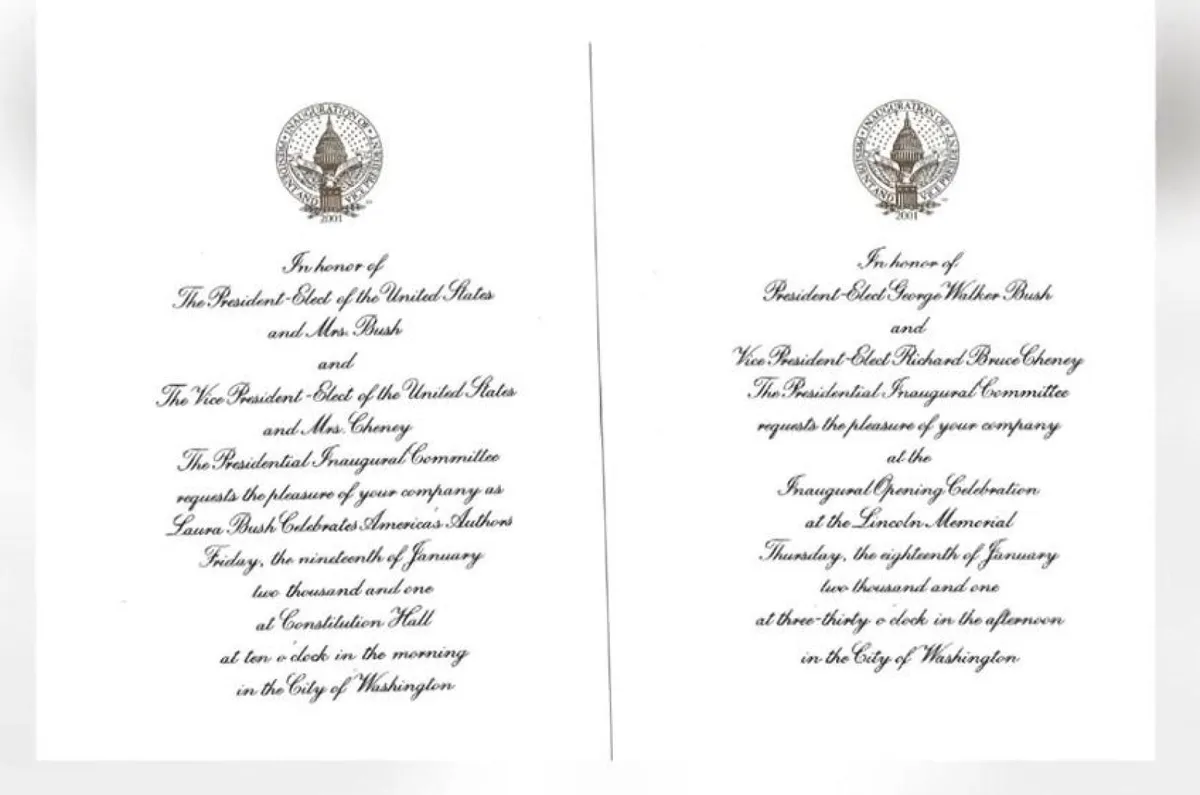 INAUGURATION OF
PRESIDENT AND VICE PRESIDENT
2001
In honor of
The President-Elect of the United States
and Mrs. Bush
and
The Vice President-Elect of the United States
and Mrs. Cheney
The Presidential Inaugural Committee
requests the pleasure of your company as
Laura Bush Celebrates America's Authors
Friday, the nineteenth of January
two thousand and one
at Constitution Hall
at ten o'clock in the morning
in the City of Washington
INAUGURATION OF
PRESIDENT AND VICE PRESIDENT
2001
In honor of
President-Elect George Walker Bush
and
Vice President-Elect Richard Bruce Cheney
The Presidential Inaugural Committee
requests the pleasure of your company
at the
Inaugural Opening Celebration
at the Lincoln Memorial
Thursday, the eighteenth of January
two thousand and one
at three-thirty o'clock in the afternoon
in the City of Washington